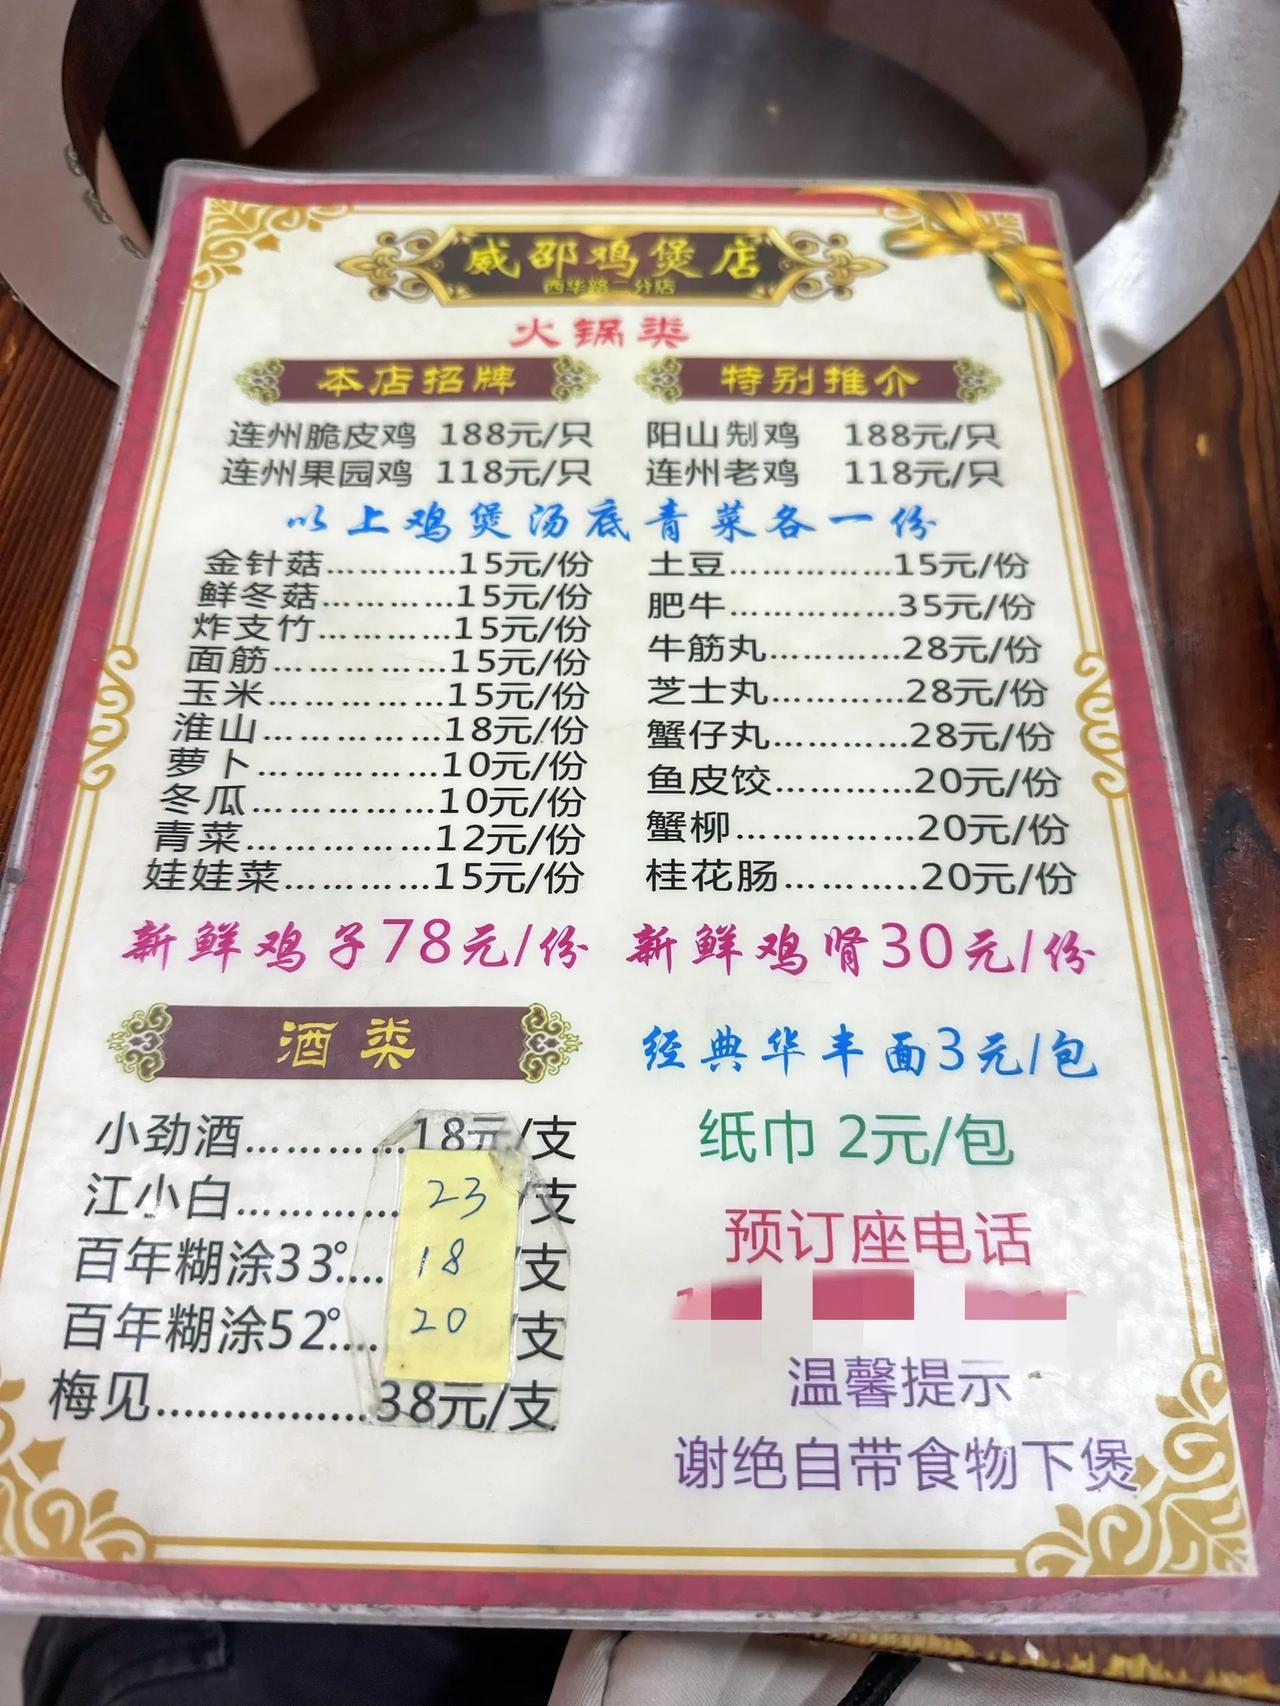 威邵鸡煲店
西华路二分店
火锅类
本店招牌
连州脆皮鸡 188元/只
连州果园鸡 118元/只
特别推介
阳山刣鸡 188元/只
连州老鸡 118元/只
以上鸡煲汤底青菜各一份
金针菇…………15元/份
鲜冬菇…………15元/份
炸支竹…………15元/份
面筋……………15元/份
玉米……………15元/份
淮山……………18元/份
萝卜……………10元/份
冬瓜……………10元/份
青菜……………12元/份
娃娃菜…………15元/份
土豆……………15元/份
肥牛……………35元/份
牛筋丸…………28元/份
芝士丸…………28元/份
蟹仔丸…………28元/份
鱼皮饺…………20元/份
蟹柳……………20元/份
桂花肠…………20元/份
新鲜鸡子78元/份
新鲜鸡肾30元/份
酒类
小劲酒…………18元/支
江小白…………23/支
百年糊涂33°….18/支
百年糊涂52°….20/支
梅见………………38元/支
经典华丰面3元/包
纸巾 2元/包
预订座电话
温馨提示
谢绝自带食物下煲